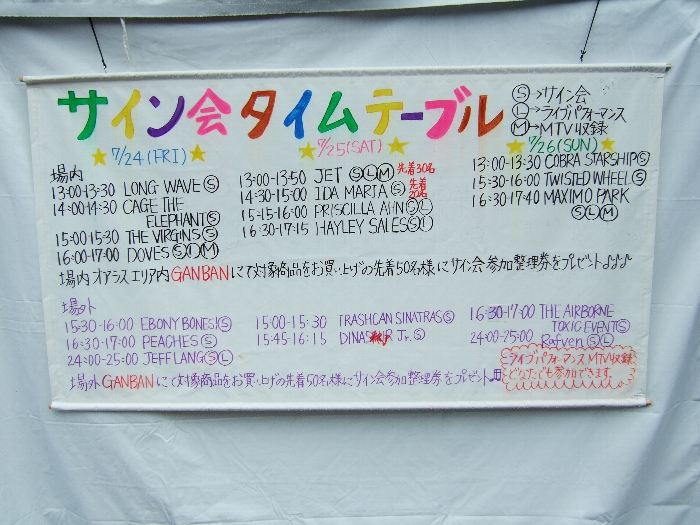 サイン会 タイムテーブル
Ⓢ→サイン会
Ⓛ→ライブパフォーマンス
Ⓜ→MTV収録
★7/24(FRI)★
場内
13:00-13:30 LONG WAVE Ⓢ
14:00-14:30 CAGE THE
ELEPHANT Ⓢ
15:00-15:30 THE VIRGINS Ⓢ
16:00-17:00 DOVES ⓈⓁⓂ
★7/25(SAT)★
13:00-13:50 JET ⓈⓁⓂ 先着30名
14:30-15:00 IDA MARIA Ⓢ 先着20名
15:15-16:00 PRISCILLA AHN ⓈⓁ
16:30-17:15 HAYLEY SALES ⓈⓁ
★7/26(SUN)★
13:00-13:30 COBRA STARSHIP Ⓢ
15:30-16:00 TWISTED WHEEL Ⓢ
16:30-17:40 MAXIMO PARK
ⓈⓁⓂ
場内 オアシスエリア内 GANBANにて対象商品をお買い上げの先着50名様にサイン会参加整理券をプレゼント♪♪♪
場外
15:30-16:00 EBONY BONES! Ⓢ
16:30-17:00 PEACHES Ⓢ
24:00-25:00 JEFF LANG ⓈⓁ
15:00-15:30 TRASHCAN SINATRAS Ⓢ
15:45-16:15 DINASAUR Jr. Ⓢ
16:30-17:00 THE AIRBORNE
TOXIC EVENT Ⓢ
24:00-25:00 Rafven ⓈⓁ
ライブパフォーマンス、MTV収録
どなたでも参加できます。
場外 GANBANにて対象商品をお買い上げの先着50名様にサイン会参加整理券をプレゼント♬